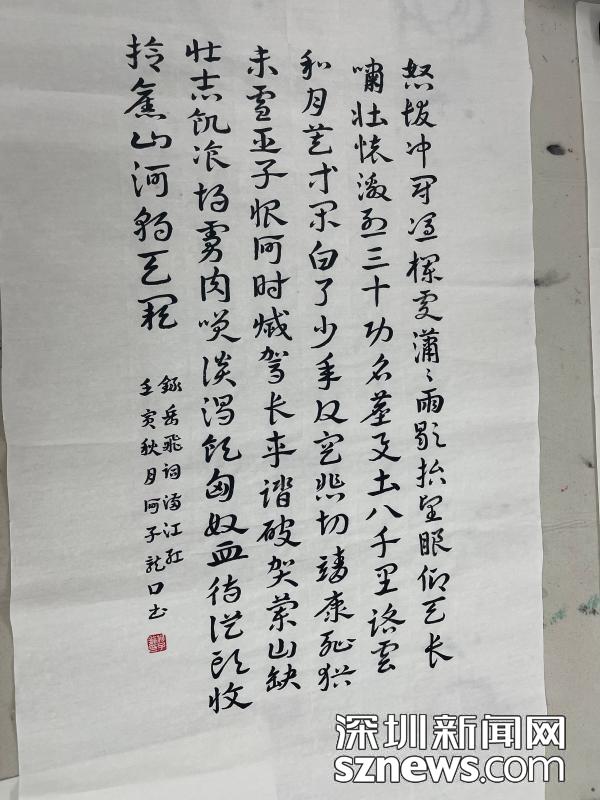 怒发冲冠凭栏处潇々雨歇抬望眼仰天长
啸壮怀激烈三十功名尘与土八千里路云
和月莫等闲白了少年头空悲切靖康耻犹
未雪臣子恨何时灭驾长车踏破贺兰山缺
壮志饥飡胡虏肉笑谈渴饮匈奴血待从头收
拾旧山河朝天阙
录岳飞词满江红
壬寅秋月 子龙 书
深圳新闻网
sznews.com